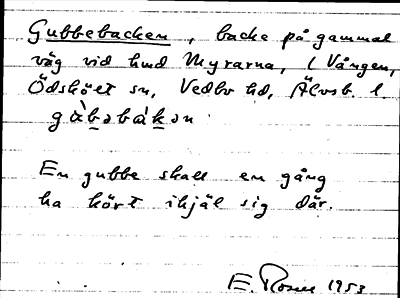 Gubbebacken, backe på gammal
väg vid lund Myrarna, l Vången,
Ödskölt sn, Vedbo hd, Älvsb. l.
gàbəbàkən
En gubbe skall en gång
ha kört ihjäl sig där.
E. Rosell 1953